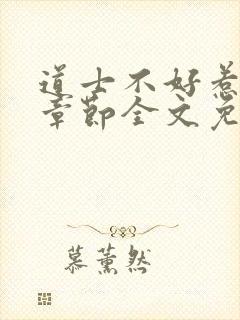 道士不好惹
章节全文免
慕薰然